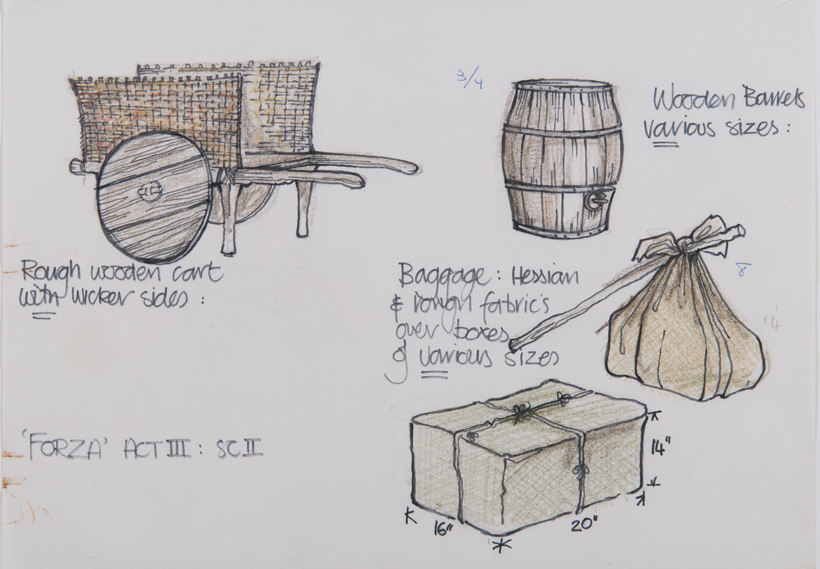 3/4
Wooden Barrels
various sizes :
Rough wooden cart
with wicker sides :
Baggage : Hessian
& rough fabrics
over boxes
of various sizes
8
'4
'FORZA' ACT III : SC II
14"
16"
20"